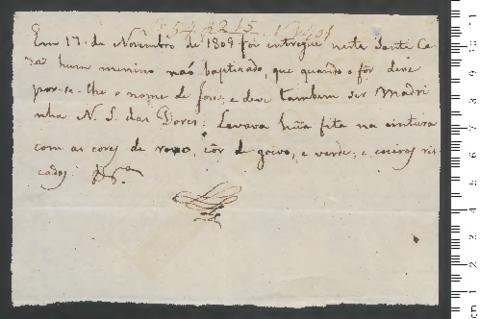 Em 17 de Novembro de 1809 foi entregue nesta Santa Ca-
za hum menino não baptizado, que quando o fôr deve
por-se-lhe o nome de Joze, e deve tambem ser Madri
nha N. S. das Dores; Levava hũa fita na cintura
com as cores de roxo, côr de goivo, e verde; e coeiros ris-
cados.